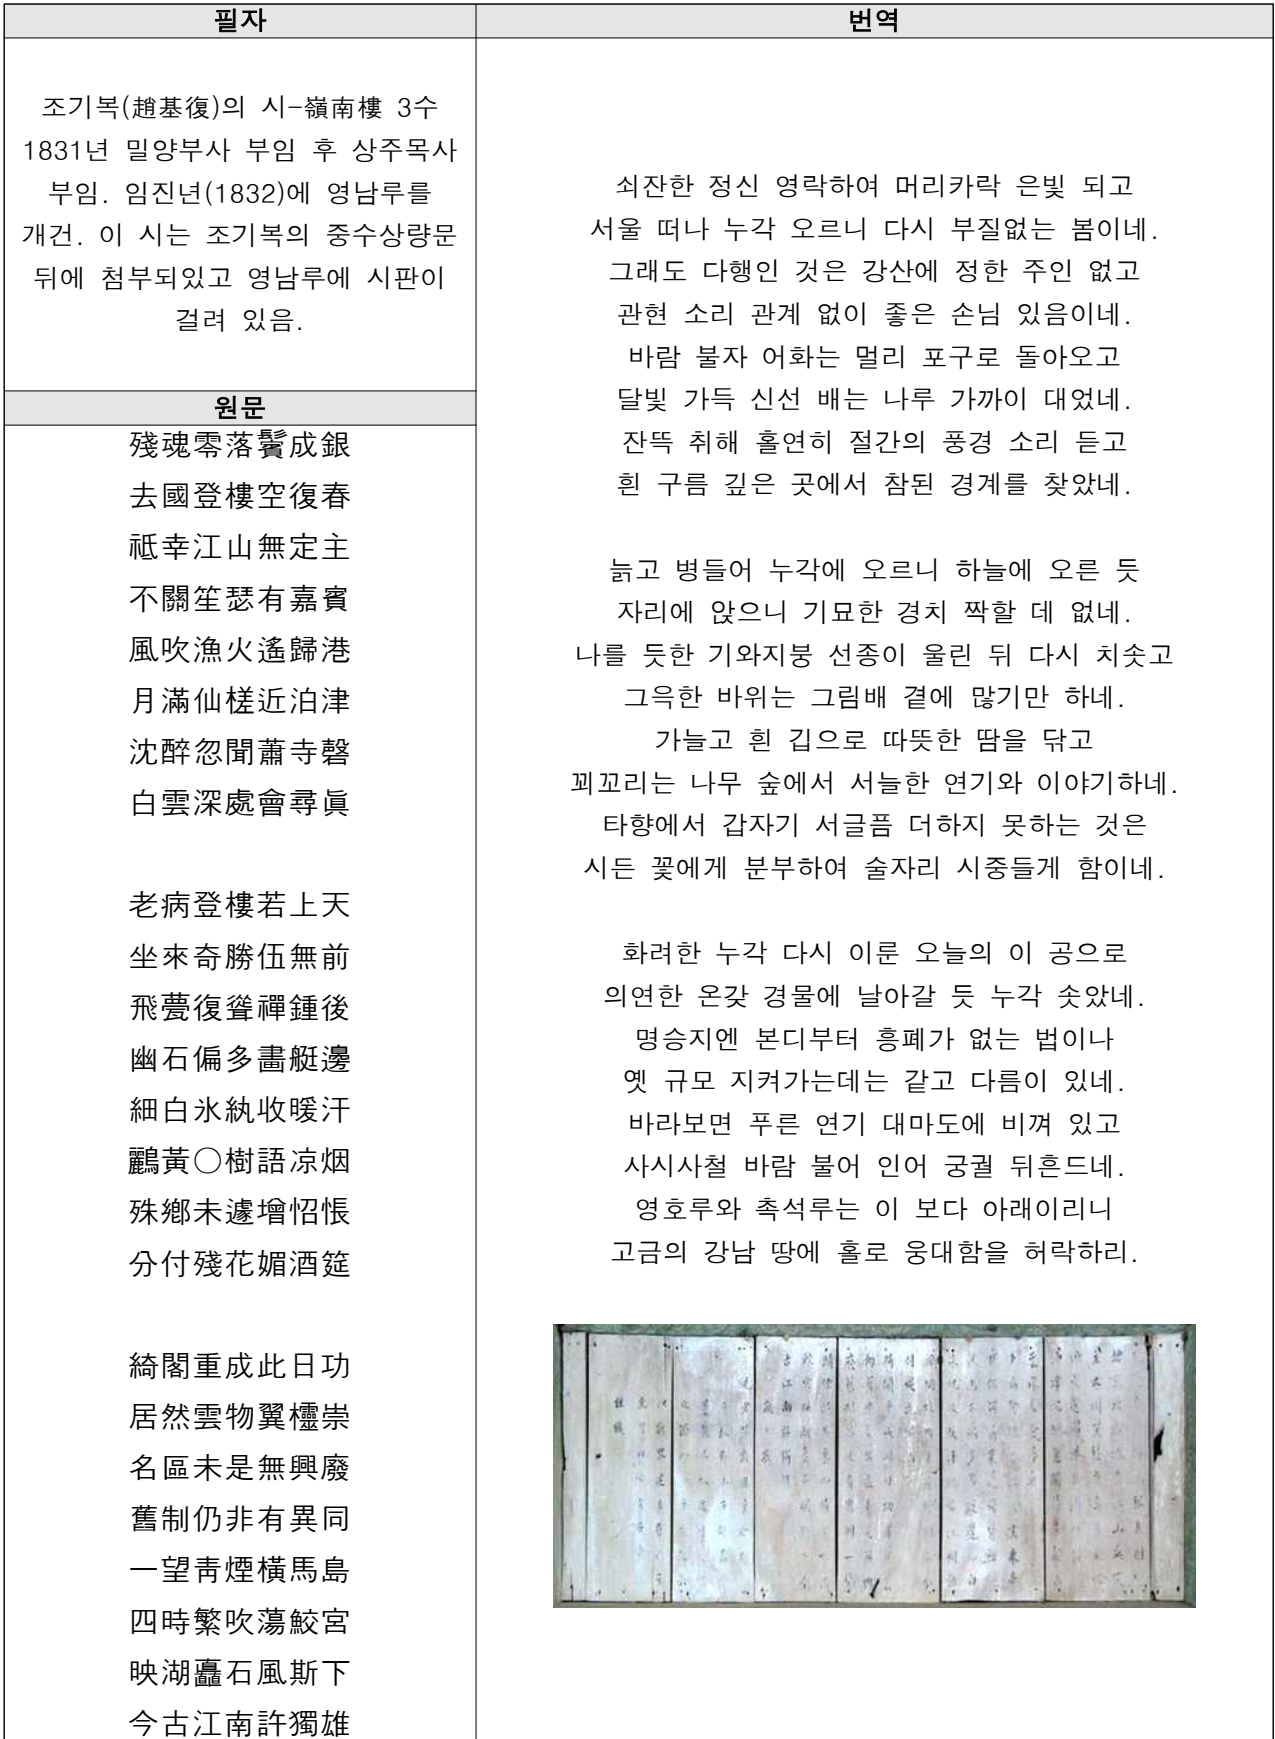 필자
조기복(趙基復)의 시-嶺南樓 3수
1831년 밀양부사 부임 후 상주목사
부임. 임진년(1832)에 영남루를
개건. 이 시는 조기복의 중수상량문
뒤에 첨부되있고 영남루에 시판이
걸려 있음.
원문
殘魂零落鬢成銀
去國登樓空復春
祗幸江山無定主
不關笙瑟有嘉賓
風吹漁火遙歸港
月滿仙槎近泊津
沈醉忽聞蕭寺磬
白雲深處會尋眞
老病登樓若上天
坐來奇勝伍無前
飛甍復聳禪鍾後
幽石偏多畵艇邊
細白氷紈收暖汗
鸝黃○樹語凉烟
殊鄕未遽增怊悵
分付殘花媚酒筵
綺閣重成此日功
居然雲物翼櫺崇
名區未是無興廢
舊制仍非有異同
一望靑煙橫馬島
四時繁吹蕩鮫宮
映湖矗石風斯下
今古江南許獨雄
번역
쇠잔한 정신 영락하여 머리카락 은빛 되고
서울 떠나 누각 오르니 다시 부질없는 봄이네.
그래도 다행인 것은 강산에 정한 주인 없고
관현 소리 관계 없이 좋은 손님 있음이네.
바람 불자 어화는 멀리 포구로 돌아오고
달빛 가득 신선 배는 나루 가까이 대었네.
잔뜩 취해 홀연히 절간의 풍경 소리 듣고
흰 구름 깊은 곳에서 참된 경계를 찾았네.
늙고 병들어 누각에 오르니 하늘에 오른 듯
자리에 앉으니 기묘한 경치 짝할 데 없네.
나를 듯한 기와지붕 선종이 울린 뒤 다시 치솟고
그윽한 바위는 그림배 곁에 많기만 하네.
가늘고 흰 깁으로 따뜻한 땀을 닦고
꾀꼬리는 나무 숲에서 서늘한 연기와 이야기하네.
타향에서 갑자기 서글픔 더하지 못하는 것은
시든 꽃에게 분부하여 술자리 시중들게 함이네.
화려한 누각 다시 이룬 오늘의 이 공으로
의연한 온갖 경물에 날아갈 듯 누각 솟았네.
명승지엔 본디부터 흥폐가 없는 법이나
옛 규모 지켜가는데는 같고 다름이 있네.
바라보면 푸른 연기 대마도에 비껴 있고
사시사철 바람 불어 인어 궁궐 뒤흔드네.
영호루와 촉석루는 이 보다 아래이리니
고금의 강남 땅에 홀로 웅대함을 허락하리.